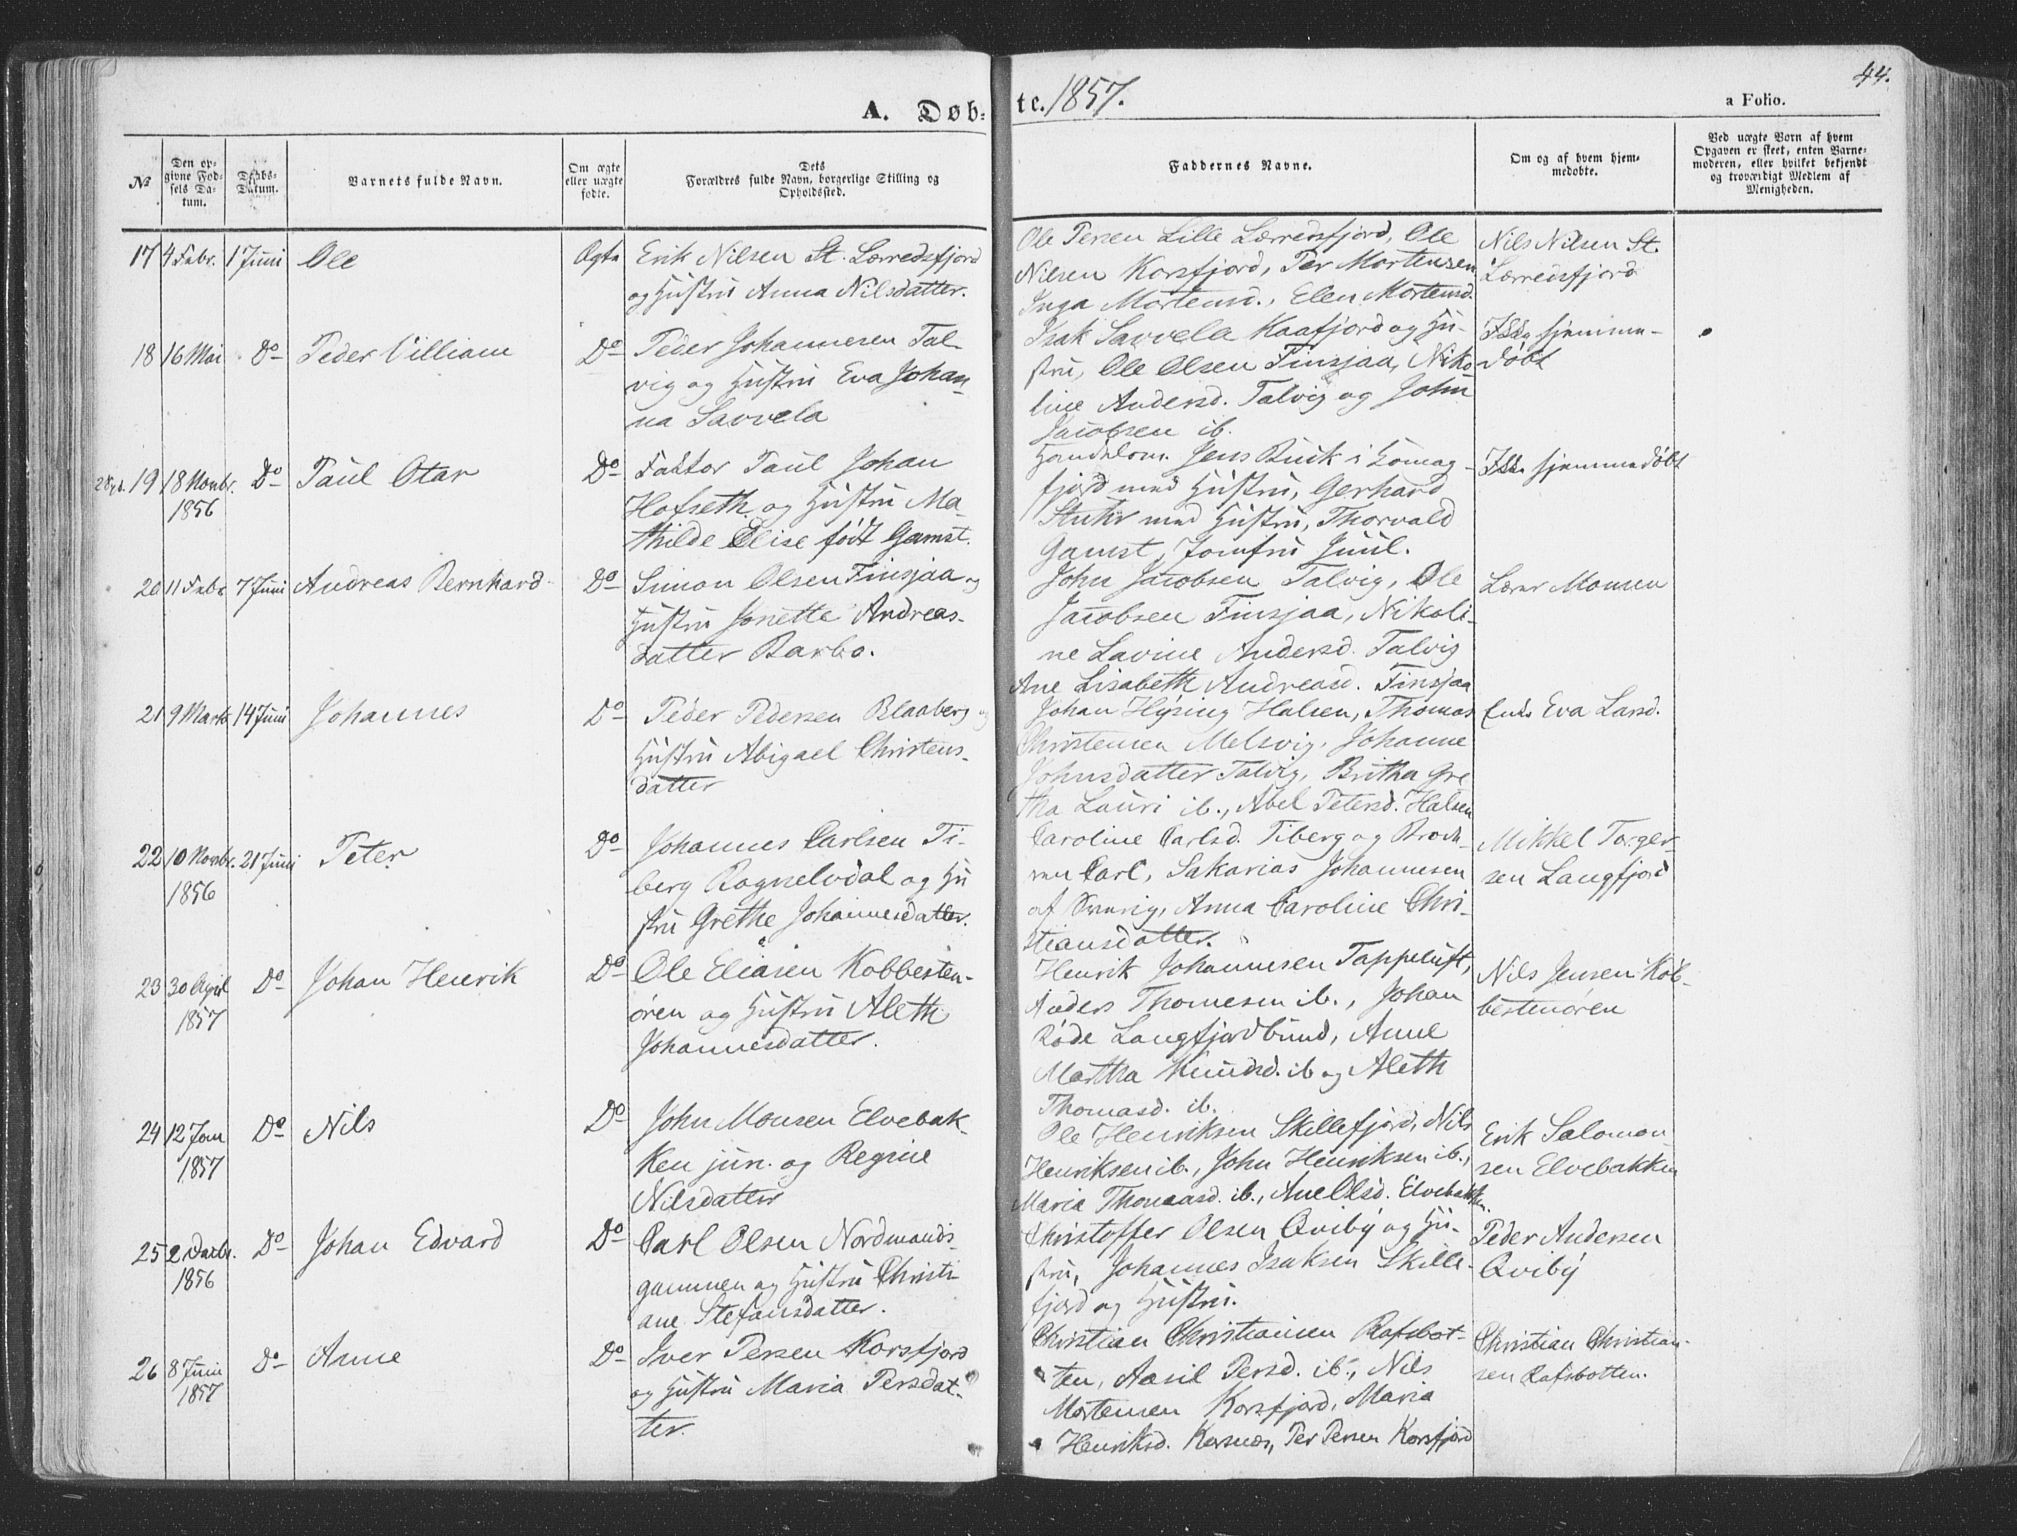 A. Døb-
te. 1857.
44.
a Folio.
No
Den op-
givne Fød-
sels Da-
tum.
Daabs-
Datum.
Barnets fulde Navn.
Om ægte
eller uægte
fødte.
Dets
Forældres fulde Navn, borgerlige Stilling og
Opholdssted.
Faddernes Navne.
Om og af hvem hjem-
medøbte.
Ved uægte Born af hvem
Opgaven er skeet, enten Barne-
moderen, eller hvilket bekjendt
og troværdigt Medlem af
Menigheden.
17 4 Febr. 1 Juni Ole Ægte Erik Nilsen St. Lerredsfjord
og Hustru Anna Nilsdatter.
Ole Persen Lille Lerredsfjord, Ole
Nilsen Korsfjord, Per Mortensen
Inga Mortensd., Elen Mortensd.
Nils Nilsen St.
Lerredsfjord
18 16 Mai Do Peder Villiam Do Peder Johannesen Tal-
vig og Hustru Eva Johan-
na Savvela
Isak Savvela Kaafjord og Hu-
stru, Ole Olsen Finsjaa, Niko-
line Andersd. Talvig og John
Jacobsen ib.
Ikke hjemme-
døbt
19 18 Novbr. Do Paul Otar Do Faktor Paul Johan
1856
Hofseth og Hustru Ma-
thilde Elise født Gamst.
Jens Buck i Komag-
fjord med Hustru, Gerhard
Stuhr med Hustru, Thorvald
Gamst, Jomfru Juul.
Ikke hjemmedøbt
20 11 Febr 7 Juni Andreas Bernhard Do Simon Olsen Finsjaa og
Hustru Jonette Andreas-
datter Barbo.
John Jacobsen Talvig, Ole
Jacobsen Finsjaa, Nikoli-
ne Lavine Andersd. Talvig
Ane Lisabeth Andreasd. Finsjaa
Lærer Monsen
21 9 Marts 14 Juni Johannes Do Peder Pedersen Blaaberg og
Hustru Abigael Christens-
datter
Johan Hysing Halsen, Thomas
Christensen Melsvig, Johanne
Johnsdatter Talvig, Britha Gre-
tha Lauri ib., Abel Petersd. Halsen
Enke Eva Larsd.
22 10 Novbr. 21 Juni Peter Do Johannes Carlsen Ti-
1856
berg Bognelvdal og Hu
stru Grethe Johannesdatter.
Caroline Carlsd. Tiberg og Brod-
ren Carl, Sakarias Johannesen
af Sverig, Anna Caroline Chri-
stiansdatter.
Mikkel Torger-
sen Langfjord
23 30 April Do Johan Henrik Do Ole Eliasen Kobbesten-
1857
øren og Hustru Aleth
Johannesdatter.
Henrik Johannesen Tappeluft,
Anders Thomesen ib., Johan
Røde Langfjordbund, Anne
Martha Knudsd. ib og Aleth
Thomasd. ib.
Nils Jensen Kob-
bestenøren
24 12 Jan Do Nils Do John Monsen Elvebak-
1857
ken jun. og Regine
Nilsdatter
Ole Henriksen Skillefjord, Nils
Henriksen ib., John Henriksen ib.,
Maria Thomasd. ib., Ane Olsd. Elvebakken.
Erik Salomon-
sen Elvebakken
25 2 Decbr. Do Johan Edvard Do Carl Olsen Nordmands-
1856
gammen og Hustru Christi-
ane Stefansdatter.
Christoffer Olsen Qviby og Hu-
stru, Johannes Isaksen Skille-
fjord og Hustru.
Peder Andersen
Qviby
26 8 Juni Do Anne Do Iver Persen Korsfjord
1857
og Hustru Maria Persdat-
ter.
Christian Christiansen Rafsbot-
ten, Aasil Persd. ib., Nils
Mortensen Korsfjord, Maria
Henriksd. Korsnæs, Per Persen Korsfjord
Christian Christian-
sen Rafsbotten.